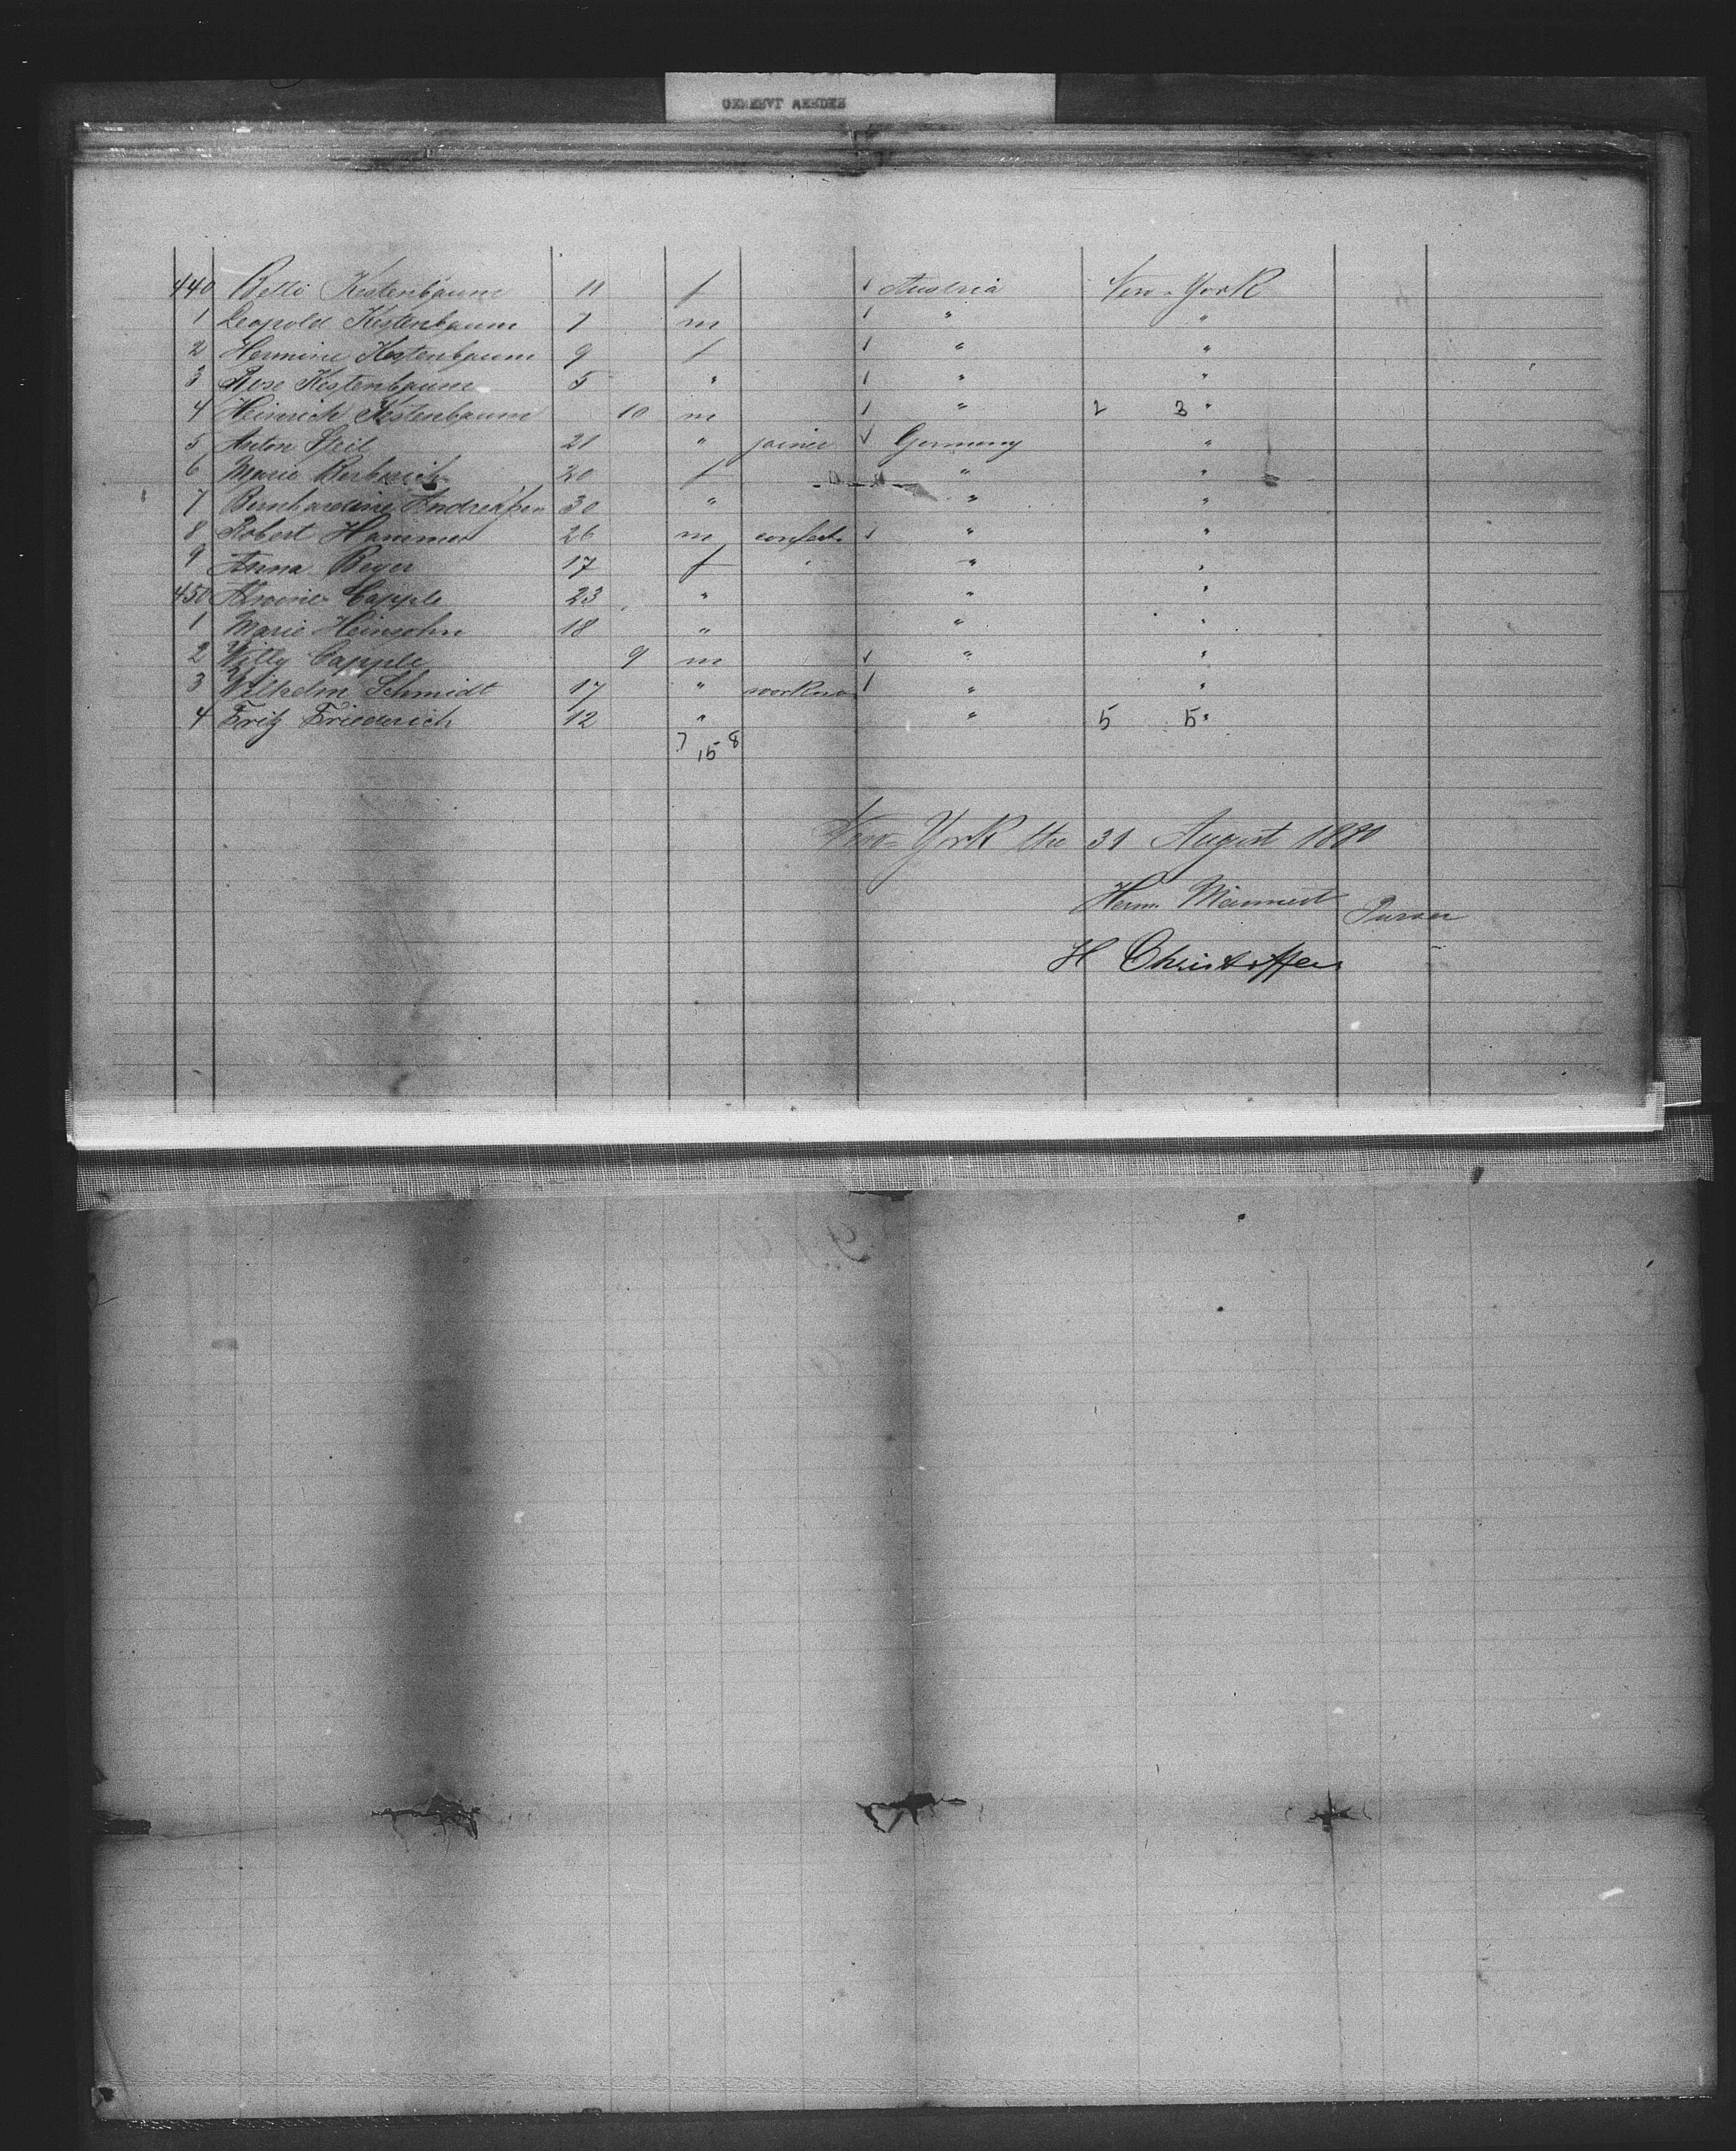 440 Betti Kestenbaum 11 f 1 Austria New-York
1 Leopold Kestenbaum 7 m 1 " "
2 Hermine Kestenbaum 9 f 1 " "
3 Rose Kestenbaum 5 " 1 " "
4 Heinrich Kestenbaum 10 m 1 " 2 3 "
5 Anton 21 " joiner 1 Germany "
6 Marie 20 f " "
7 Bernhardine Andreassen 30 " " "
8 Robert Hammer 26 m confect. 1 " "
9 Anna Beyer 17 f " "
450 Alwine Capple 23 " " "
1 Marie Heinsohn 18 " " "
2 Willy Capple 9 m 1 " "
3 Wilhelm Schmidt 17 " workm 1 " "
4 Fritz Friederich 12 " " 5 5 "
7 15 8
New-York the 31 August 1880
Herm. Purser
H Christoffers